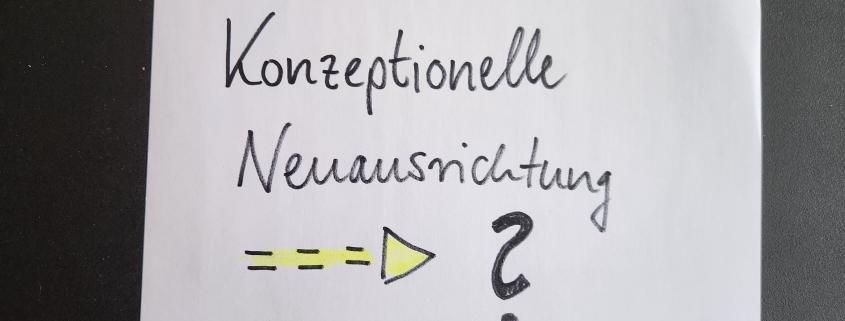 Konzeptionelle
Neuausrichtung
?